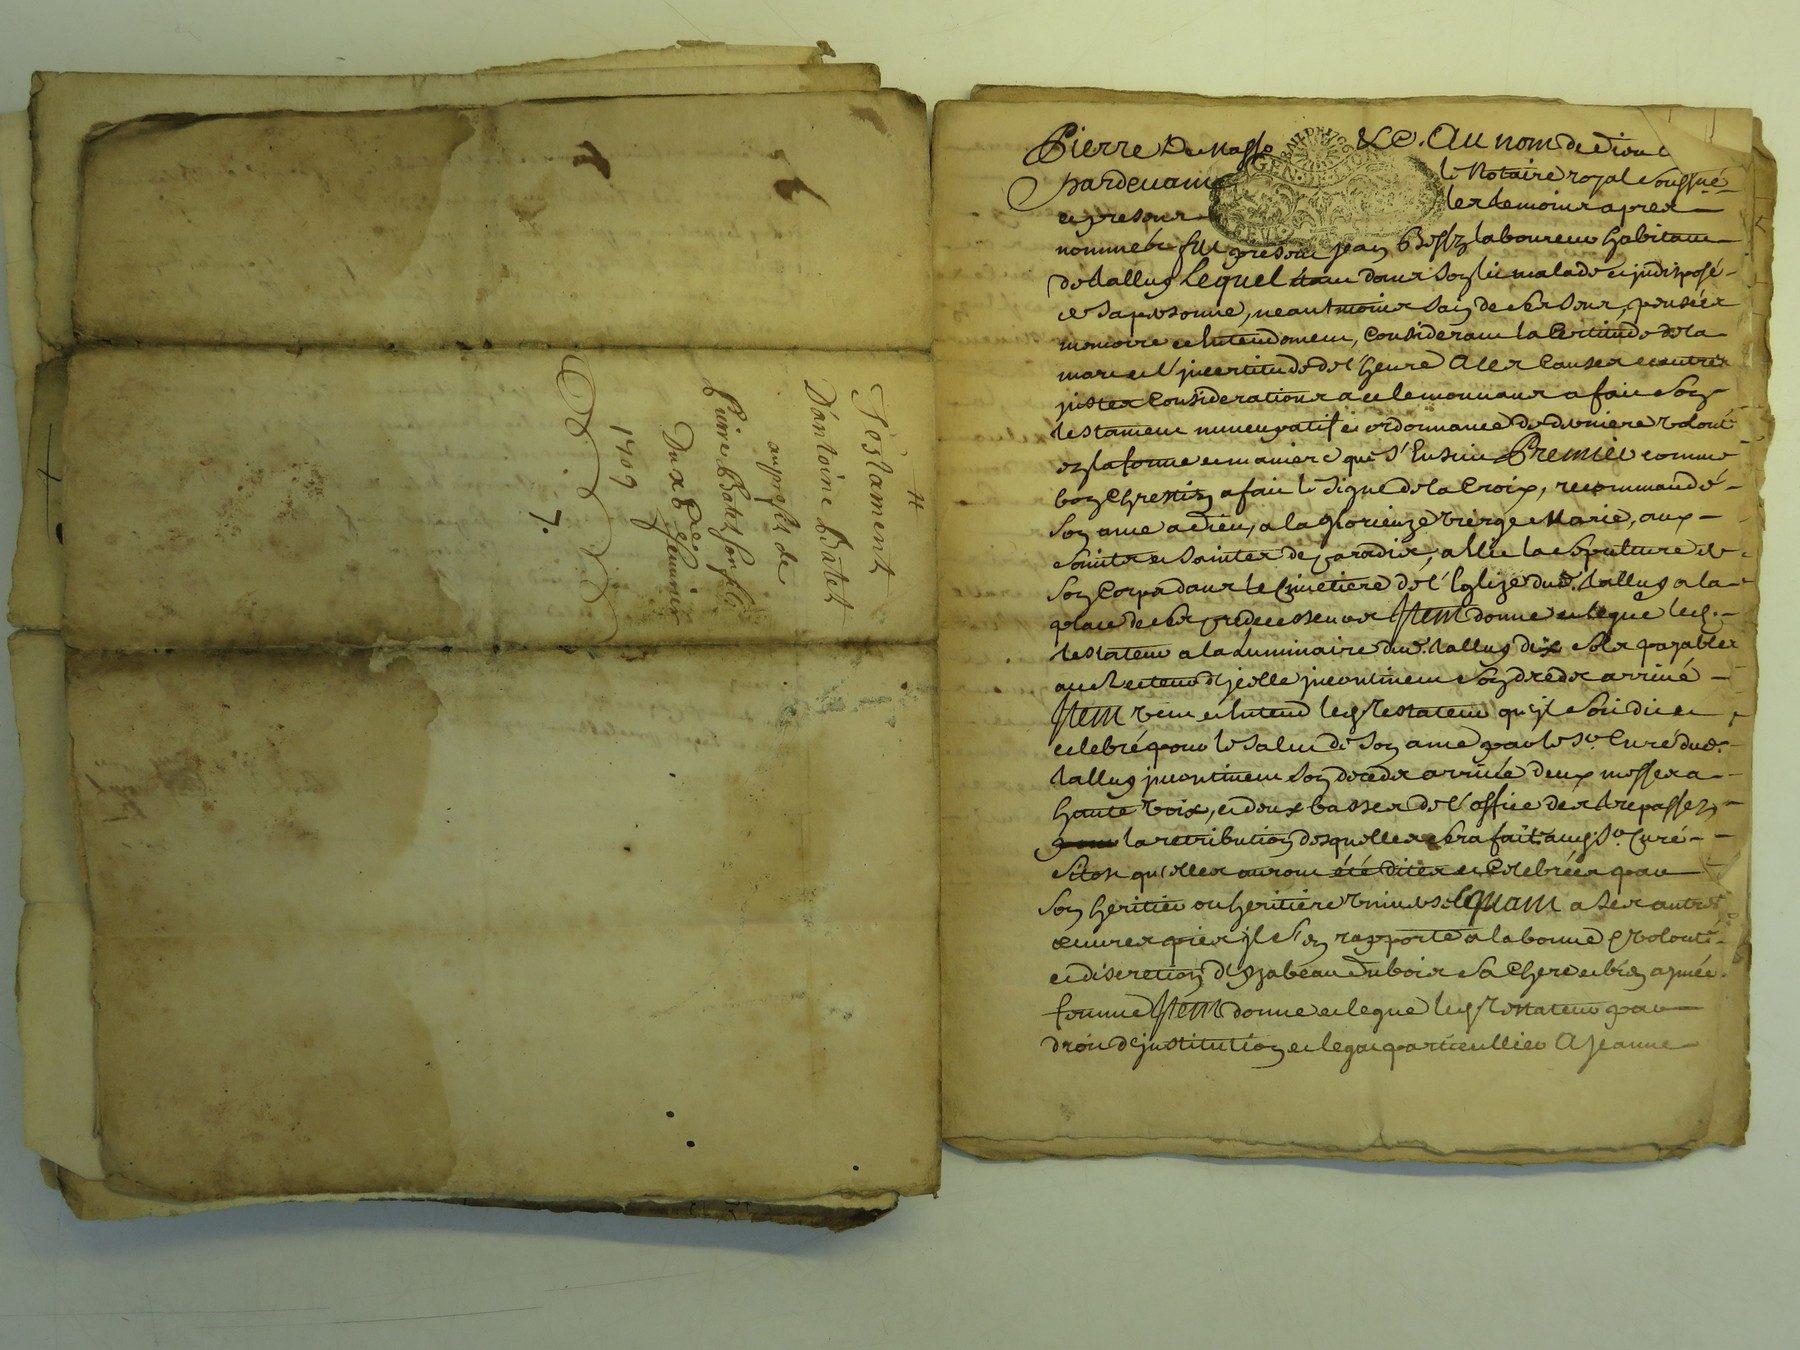 Testament
D'antoine Batet
au profit de
Pierre Batet son fils
Du xx fevrier
1709
7.
Pierre De Masso &c. Au nom de Dieu
pardevant le Notaire royal soussigné
et presens les temoins apres
nommés fut present jean laboureur habitant
de tallus lequel etant dans son lit malade et indisposé
de sa personne, neantmoins sain de ses sens, pensées
memoire et entendement, considerant la certitude de la
mort et l'incertitude de l'heure a ces causes et autres
justes considerations a ce le mouvant a fait son
testament nuncupatif et ordonnance de derniere volonté
en la forme et maniere que s'ensuit Premier comme
bon Chrestien a fait le signe de la Croix, recommandé
son ame a dieu, a la glorieuze vierge Marie, aux
saints et saintes de paradis, a elu la sepulture de
son Corps dans le Cimetiere de l'Eglize dud. tallus a la
place de ses predecesseurs Item donne et legue led.
testateur a la Luminaire dud. tallus dix sols payables
au Recteur d'icelle incontinent son decedz arrivé
Item veut et entend led. Testateur qu'il soit dit et
celebré pour le salut de son ame par le Sr. Curé dud.
tallus incontinent son decedz arrivée deux messes a
haute voix, et deux basses de l'office des trepassez
la retribution desquelles sera fait aud. Sr. Curé
sitost qu'elles auront été dites et Celebrées par
son heritier ou heritiere Quant a ses autres
œuvres pies il s'en rapporte a la bonne volonté
et discretion d'yzabeau dubois sa Chere et bien aymée
femme Item donne et legue led. Testateur par
droit d'institution et legat particullier A jeanne